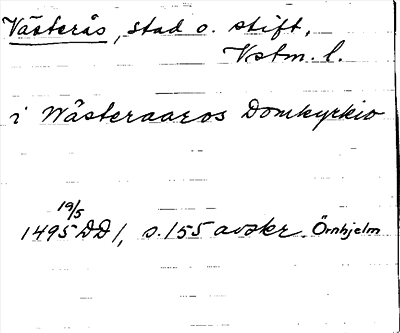 Västerås, stad o. stift,
Vstm. l.
i Wästeraaros Domkyrkio
19/5
1495 DD 1, s. 155 avskr. Örnhjelm